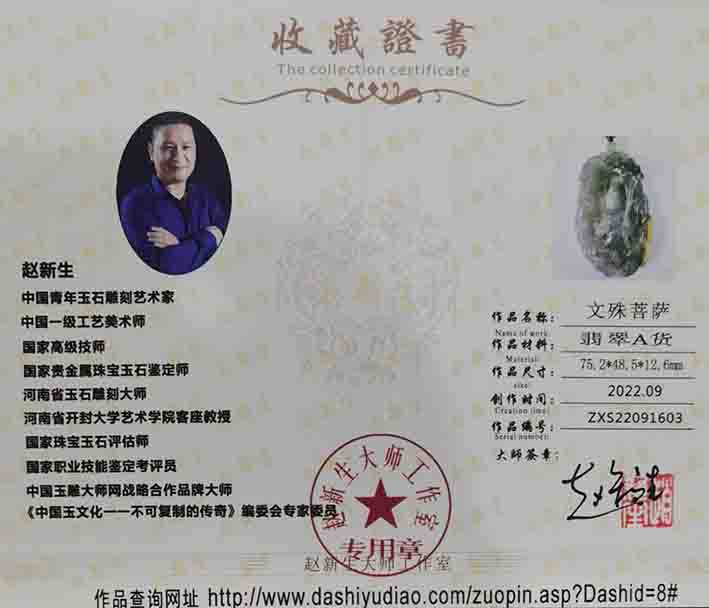 收藏證書
The collection certificate
赵新生
中国青年玉石雕刻艺术家
中国一级工艺美术师
国家高级技师
国家贵金属珠宝玉石鉴定师
河南省玉石雕刻大师
河南省开封大学艺术学院客座教授
国家珠宝玉石评估师
国家职业技能鉴定考评员
中国玉雕大师网战略合作品牌大师
《中国玉文化一一不可复制的传奇》编委会专家委员
作品名称: 文殊菩萨
Name of work:
作品材料: 翡翠A货
Material:
作品尺寸: 75.2*48.5*12.6mm
size:
创作时间: 2022.09
Creation time:
作品编号: ZXS22091603
Serial number:
大师签章:
赵新生大师工作室
专用章
赵新生大师工作室
作品查询网址 http://www.dashiyudiao.com/zuopin.asp?Dashid=8#